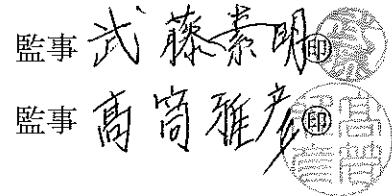 監事 武藤素明㊞
監事 髙筒雅彦㊞